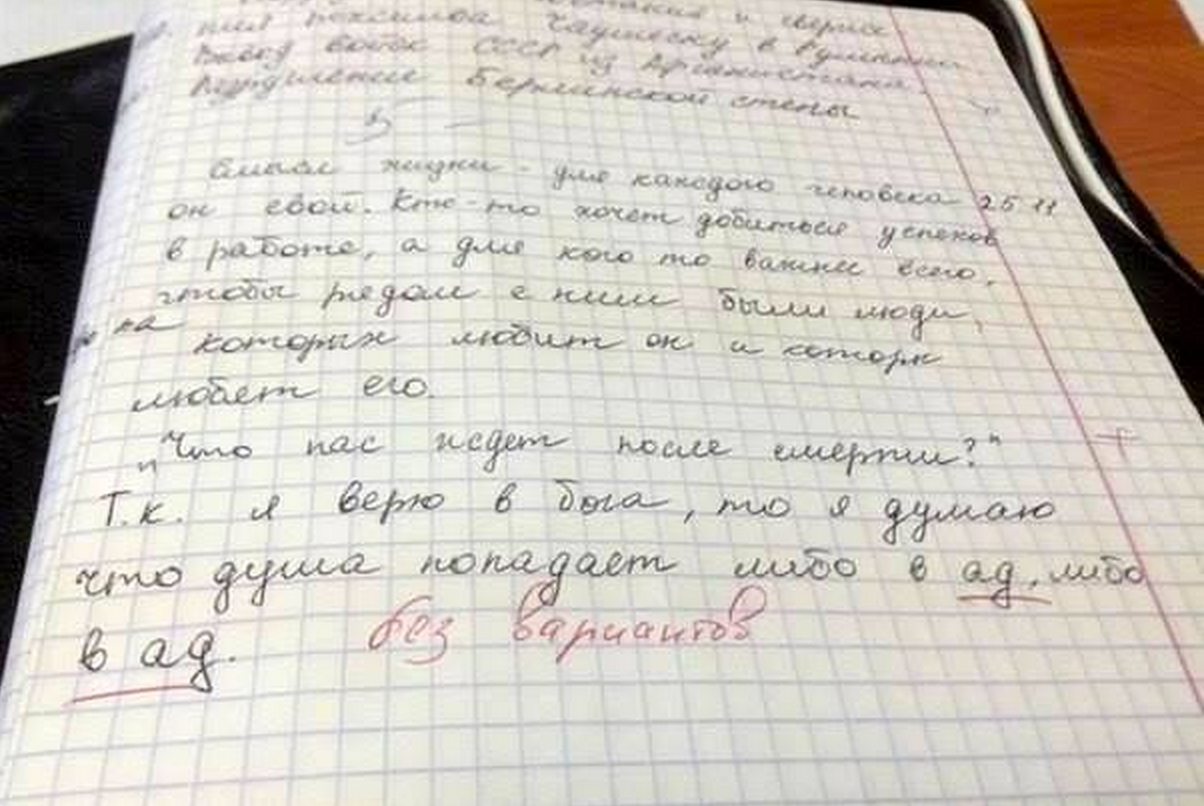 и сверже
ния режима Чаушеску в Румынии.
Вывод войск СССР из Афганистана.
Разрушение Берлинской стены
Смысл жизни - для каждого человека
25 11
он свой. Кто-то хочет добиться успехов
в работе, а для кого то важнее всего,
чтобы рядом с ним были люди,
на
которых любит он и которы
любет его.
"Что нас ждет после смерти?"
Т.к. я верю в бога, то я думаю
что душа попадает либо в ад, либо
в ад. без вариантов